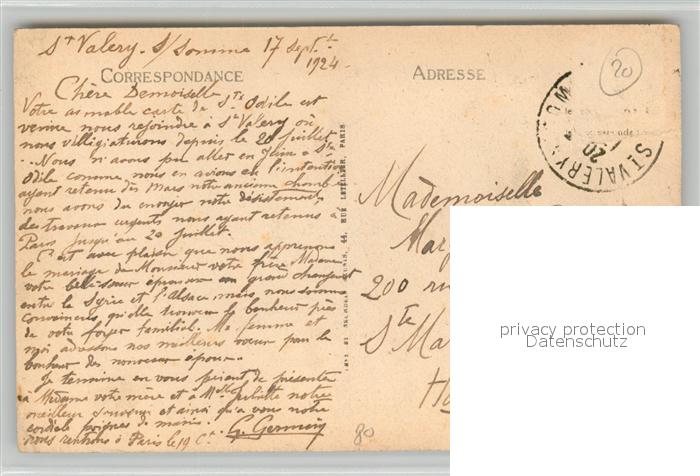 St Valery. S/Somme 17 Septbre
1924
CORRESPONDANCE
Chère Demoiselle,
Votre aimable carte de Ste Odile est
venue nous rejoindre à St Valery où
nous villégiaturons depuis le 20 juillet
.. Nous n'avons pu aller en Juin à Ste
Odile comme nous en avions eu l'intention
ayant retenu dès Mars notre ancienne chambre
nous avons dû envoyer notre désistement
des travaux urgents nous ayant retenus à
Paris jusqu'au 20 juillet.
C'est avec plaisir que nous apprenons
le mariage de Monsieur votre frère Madame
votre belle sœur éprouve un grand changement
entre la Syrie et l'Alsace mais nous sommes
convaincus qu'elle trouvera le bonheur près
de votre foyer familial. Ma femme et
moi adressons nos meilleurs vœux pour le
bonheur des nouveaux époux.
Je termine en vous priant de présenter
à Madame votre mère et à Melle notre
meilleur souvenir et ainsi qu'à vous notre
cordiale poignée de mains.
nous rentrons à Paris le 19 Ct. G. Germain
44, RUE LETELLIER, PARIS
ADRESSE
20
ST VALERY-S-SOMME
20
Mademoiselle
Mar
200 ru
Ste Ma
80
privacy protection
Datenschutz